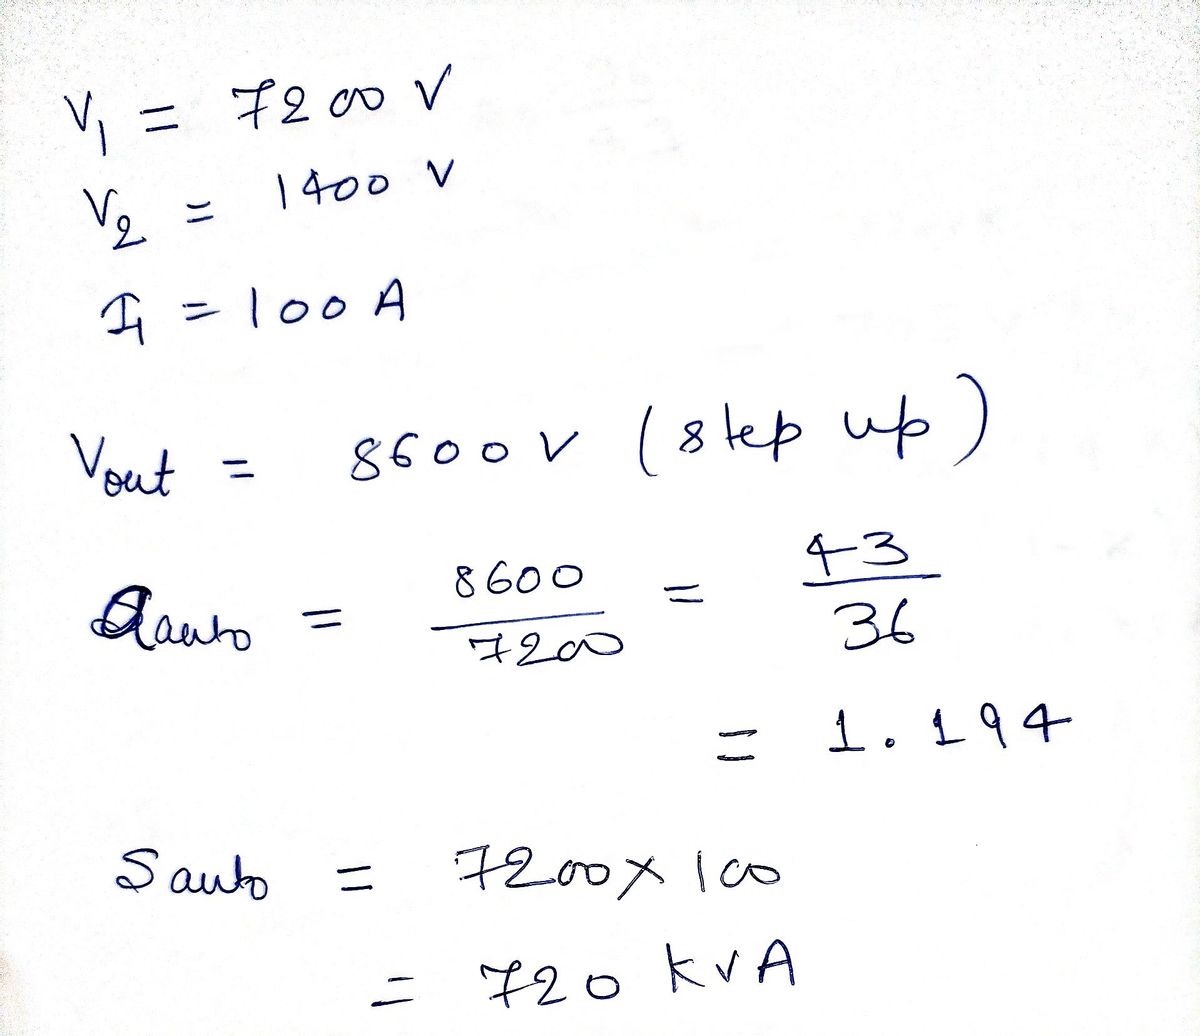 V₁ = 7200 V
V₂ = 1400 V
I₁ = 100 A
Vout = 8600 V (step up)
aauto = 8600/7200 = 43/36
= 1.194
Sauto = 7200 × 100
= 720 kVA